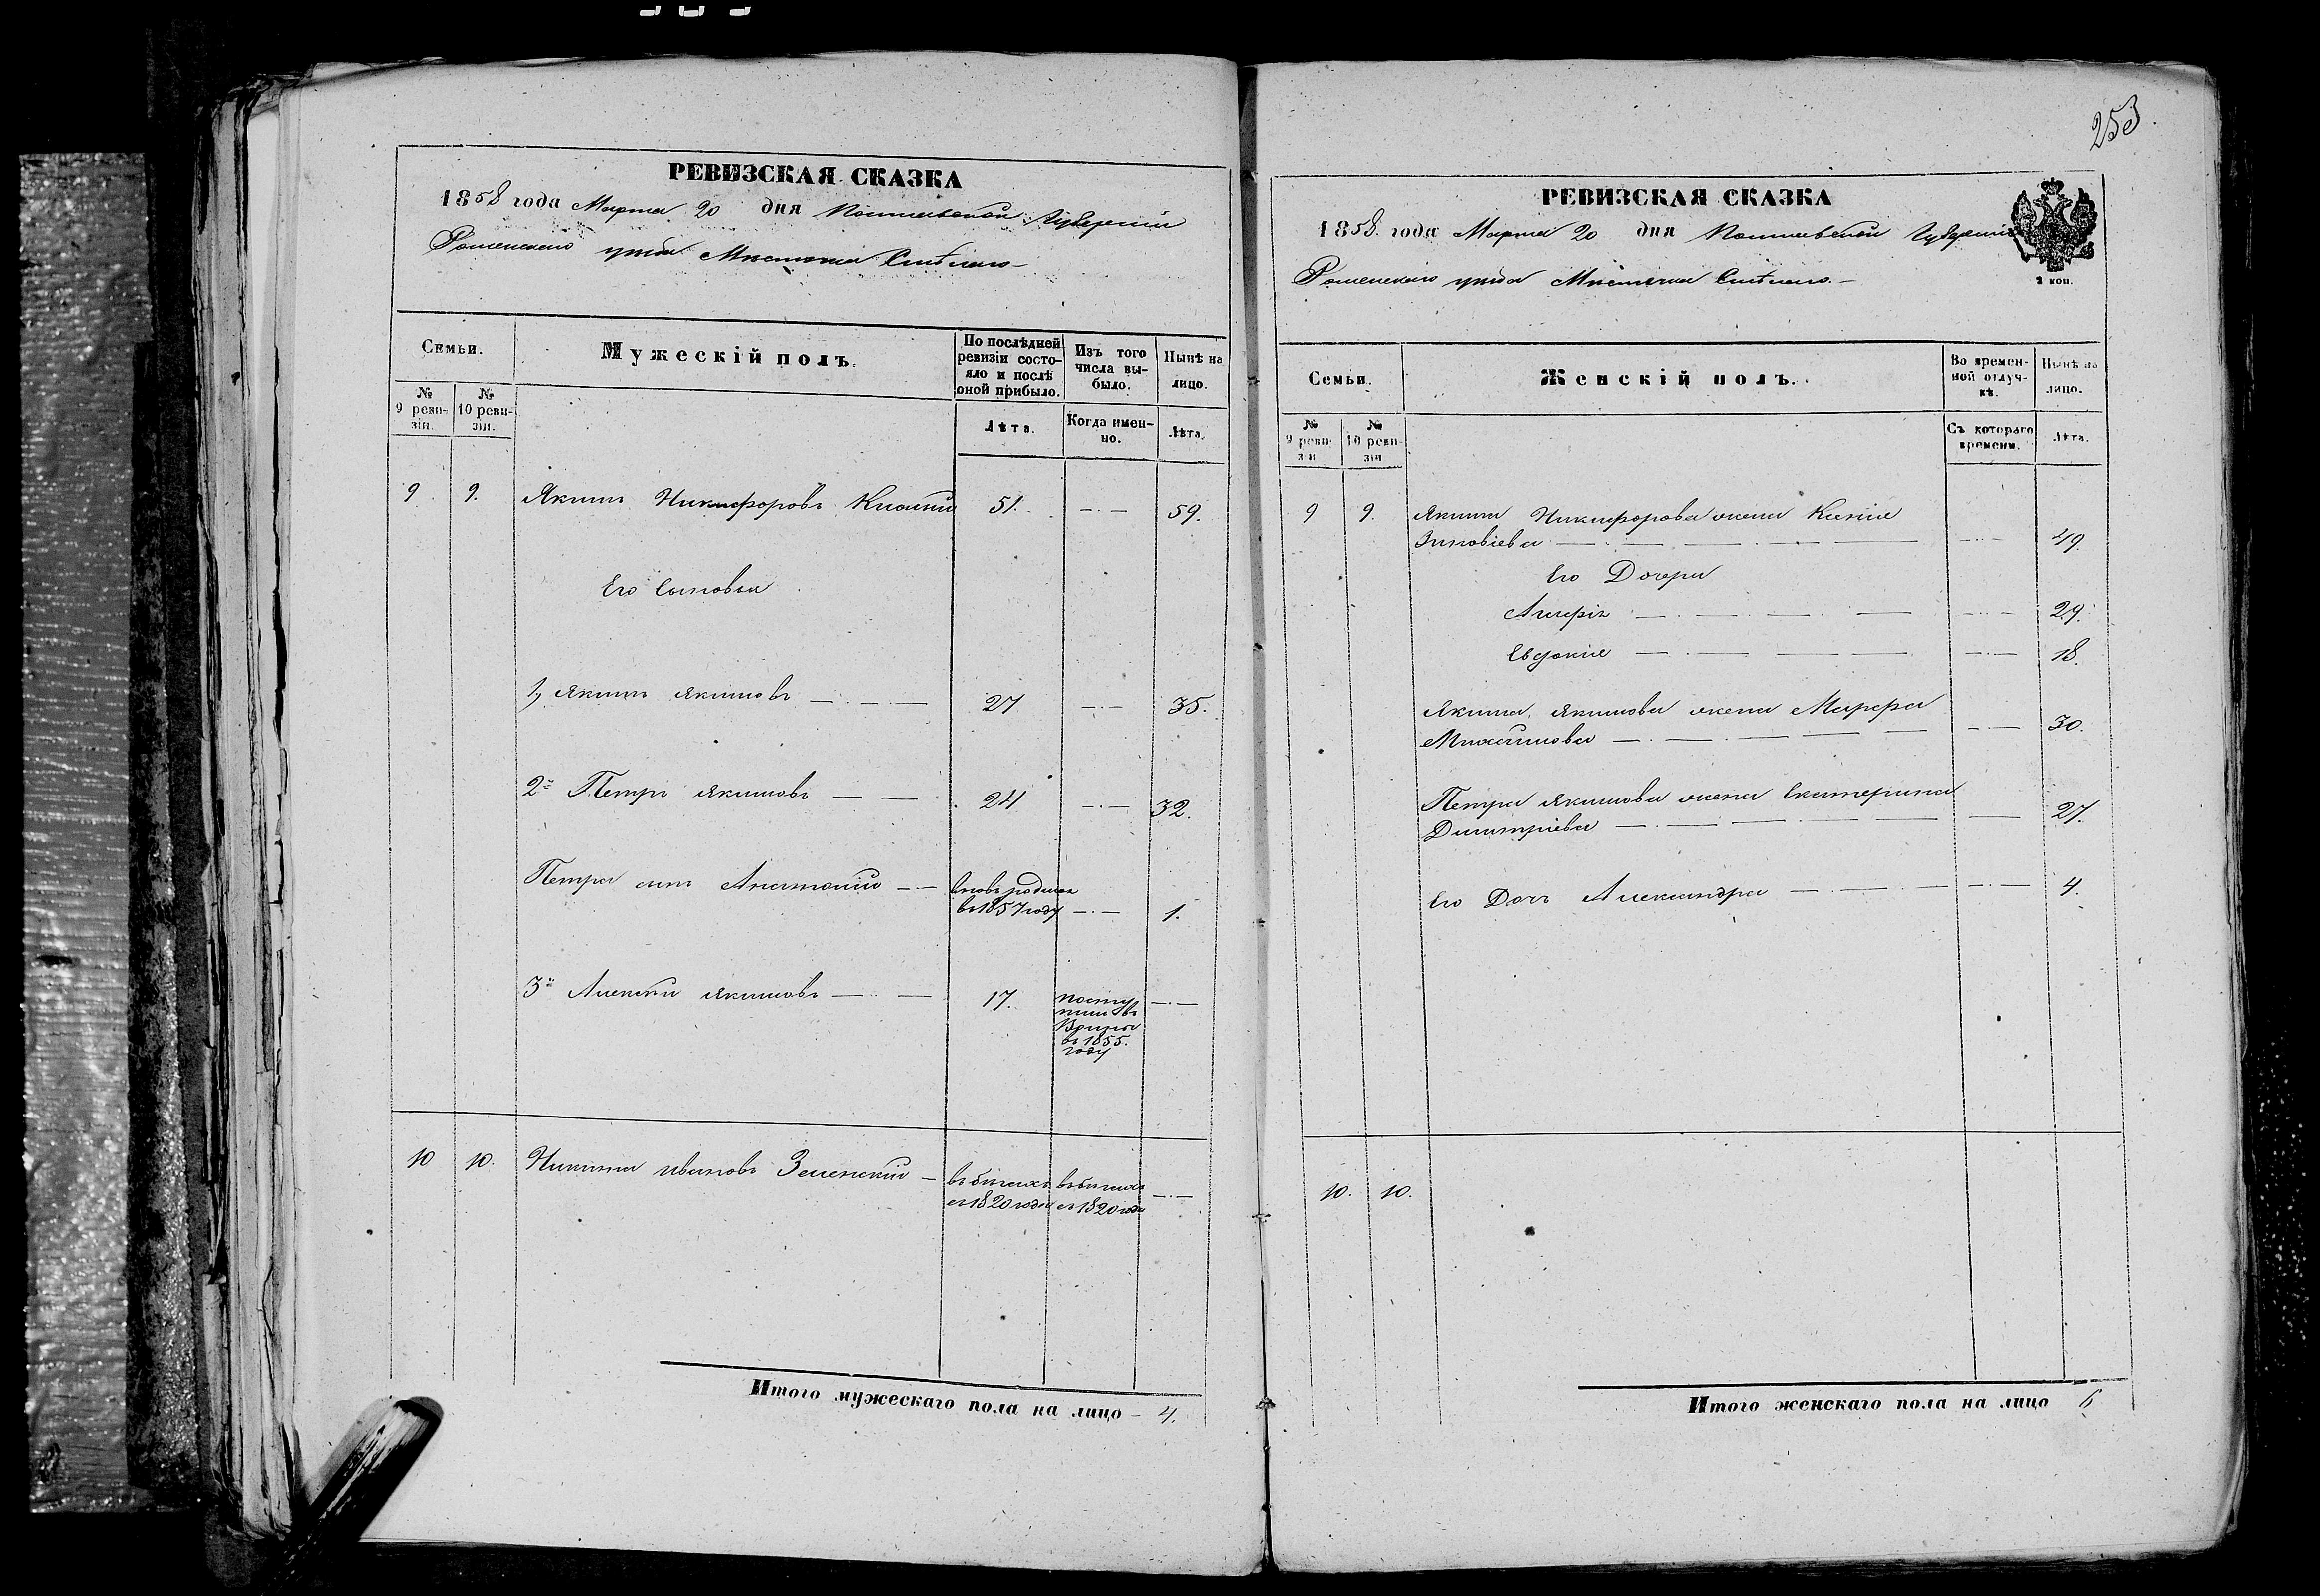 253
РЕВИЗСКАЯ СКАЗКА
1858 года Марта 20 дня Полтавской Губерніи
Роменскаго уезда Местечка Смѣлаго
Семьи.
Мужескій полъ.
По послѣдней ревизіи состояло и послѣ оной прибыло.
Изъ того числа выбыло.
Нынѣ на лицо.
№ 9 ревизіи.
№ 10 ревизіи.
Лѣта.
Когда именно.
Лѣта.
9. 9. Якимъ Никифоровъ 51. — 59.
Его Сыновья
1, Якимъ Якимовъ — 27 — 35.
2й Петръ Якимовъ — 24 — 32.
Петра сынъ Анатолий — вновь родился
въ 1857 году — 1.
3й Алексей Якимовъ — 17.
посту
пилъ въ
въ 1855.
году —
10 10. Никита Ивановъ Зеленский — въ бегахъ въ бегахъ —
съ 1820 года съ 1820 года
Итого мужескаго пола на лицо – 4.
РЕВИЗСКАЯ СКАЗКА
1858 года Марта 20 дня Полтавской Губерніи
Роменскаго уезда Местечка Смѣлаго
2 коп.
Семьи.
Женскій полъ.
Во временной отлучкѣ.
Нынѣ на лицо.
№ 9 ревизіи
№ 10 ревизіи
Съ котораго времени.
Лѣта.
9 9. Якима Никифорова жена Ксенія
Зиновіева — 49.
Его Дочери
29.
Евдокія — 18.
Якима Якимова жена Марфа
30.
Петра Якимова жена Екатерина
Димитріева — 27.
Его Дочь Александра — 4.
10. 10.
Итого женскаго пола на лицо 6